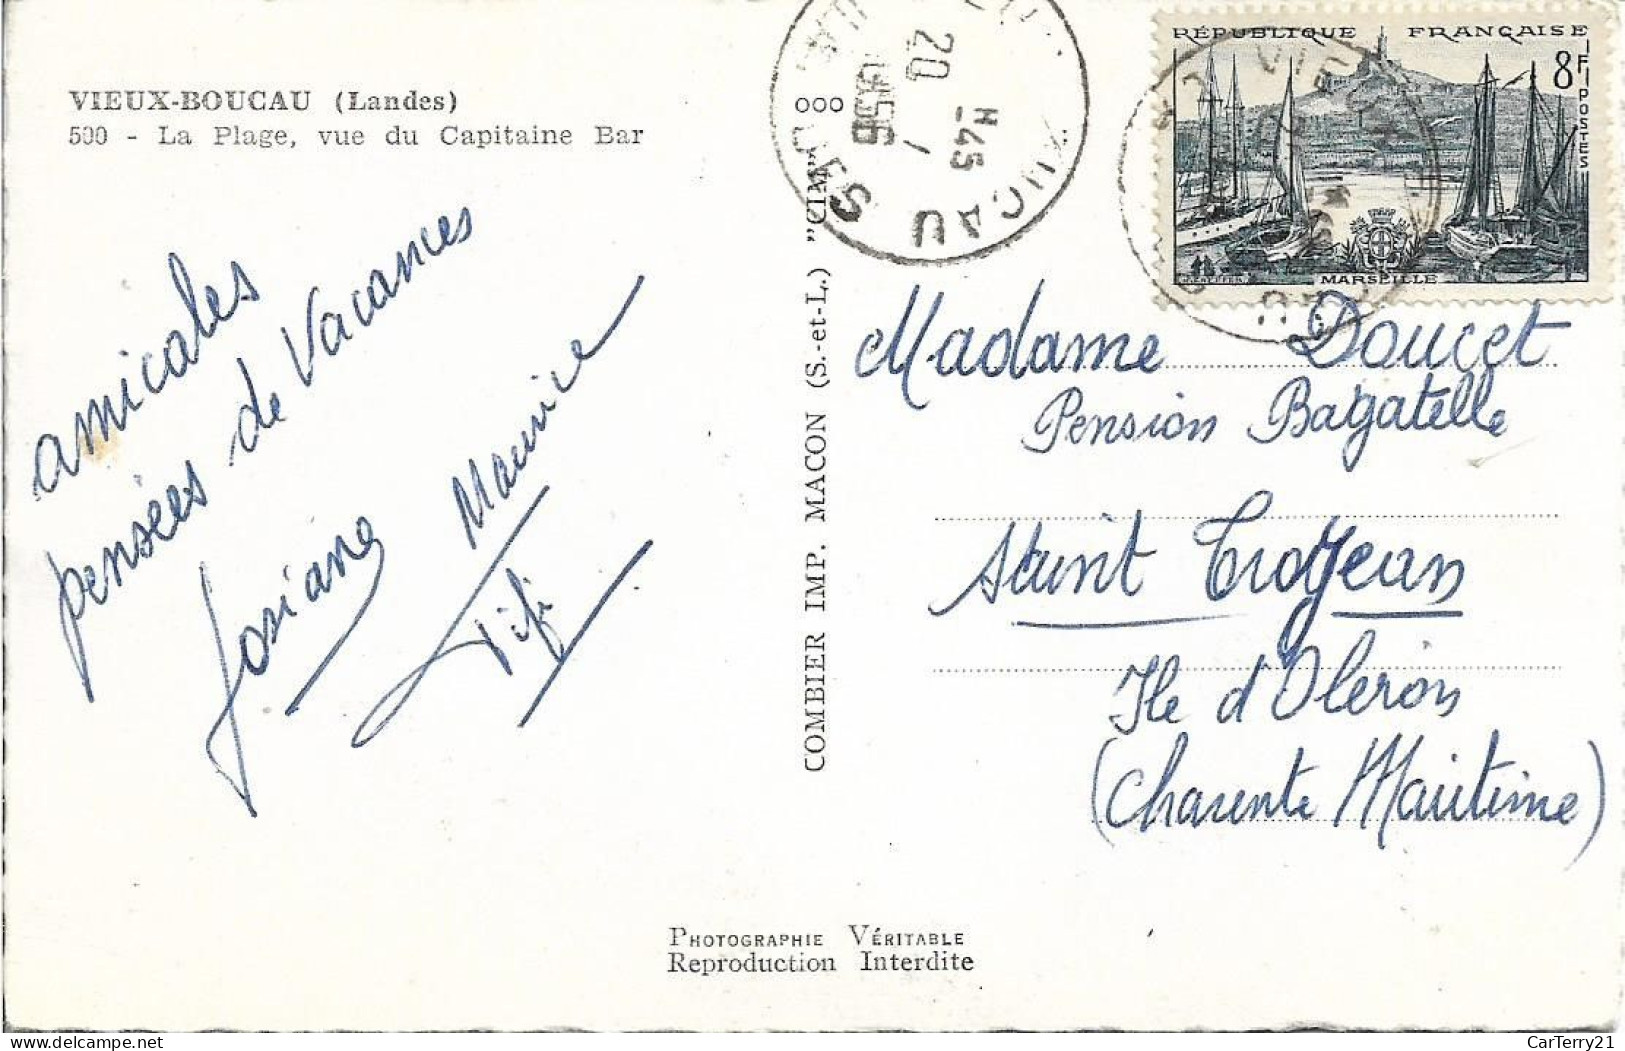 VIEUX-BOUCAU (Landes)
500 - La Plage, vue du Capitaine Bar
amicales
pensées de Vacances
Josiane Maurice
Fifi
COMBIER IMP. MACON (S.-et-L.) "CIM"
RÉPUBLIQUE FRANÇAISE
8F
POSTES
MARSEILLE
20
1956
Madame Doucet
Pension Bagatelle
Saint Trojean
Ile d'Oleron
(Charente Maritime)
PHOTOGRAPHIE VÉRITABLE
Reproduction Interdite
CarTerry21